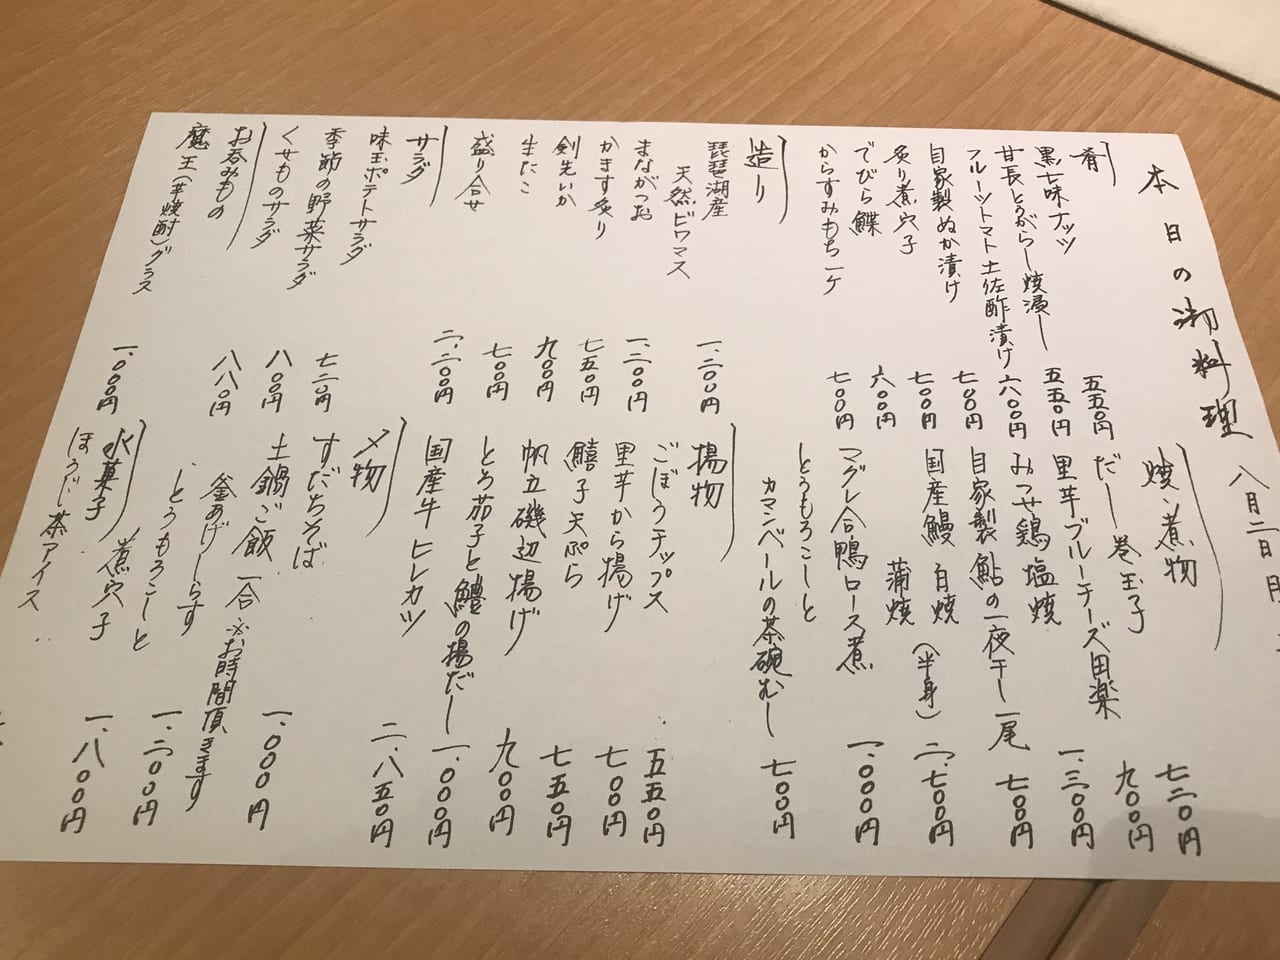 本日の御料理
八月二日
肴
黒七味ナッツ 五五〇円
甘長とうがらし焼浸し 五五〇円
フルーツトマト土佐酢漬け 六八〇〇円
自家製ぬか漬け 七〇〇円
炙り煮穴子 七〇〇円
でびら鰈 六〇〇円
からすみもち一ケ 七〇〇円
造り
琵琶湖産
天然ビワマス 一、二〇〇円
まながつお 一、二〇〇円
かます炙り 七五〇円
剣先いか 九〇〇円
生たこ 七〇〇円
盛り合せ 二、二〇〇円
サラダ
味玉ポテトサラダ 七二〇円
季節の野菜サラダ 八〇〇円
くせものサラダ 八八〇円
お呑みもの
魔王(芋焼酎)グラス 一、〇〇〇円
焼・煮物
だし巻玉子 七二〇円
里芋ブルーチーズ田楽 九〇〇円
みつせ鶏塩焼 一、三〇〇円
自家製鮎の一夜干し一尾 七〇〇円
国産鰻 白焼
蒲焼 (半身) 二、七〇〇円
マグレ合鴨ロース煮 一、〇〇〇円
とうもろこしと
カマンベールの茶碗むし 七〇〇円
揚物
ごぼうチップス 五五〇円
里芋から揚げ 七〇〇円
鱚子天ぷら 七五〇円
帆立磯辺揚げ 九〇〇円
とろ茄子と鱧の揚だし 一、〇〇〇円
国産牛ヒレカツ 二、八五〇円
〆物
すだちそば 一、〇〇〇円
土鍋ご飯 一合 ※お時間頂きます
釜あげしらす 一、二〇〇円
とうもろこしと煮穴子 一、八〇〇円
水菓子
ほうじ茶アイス